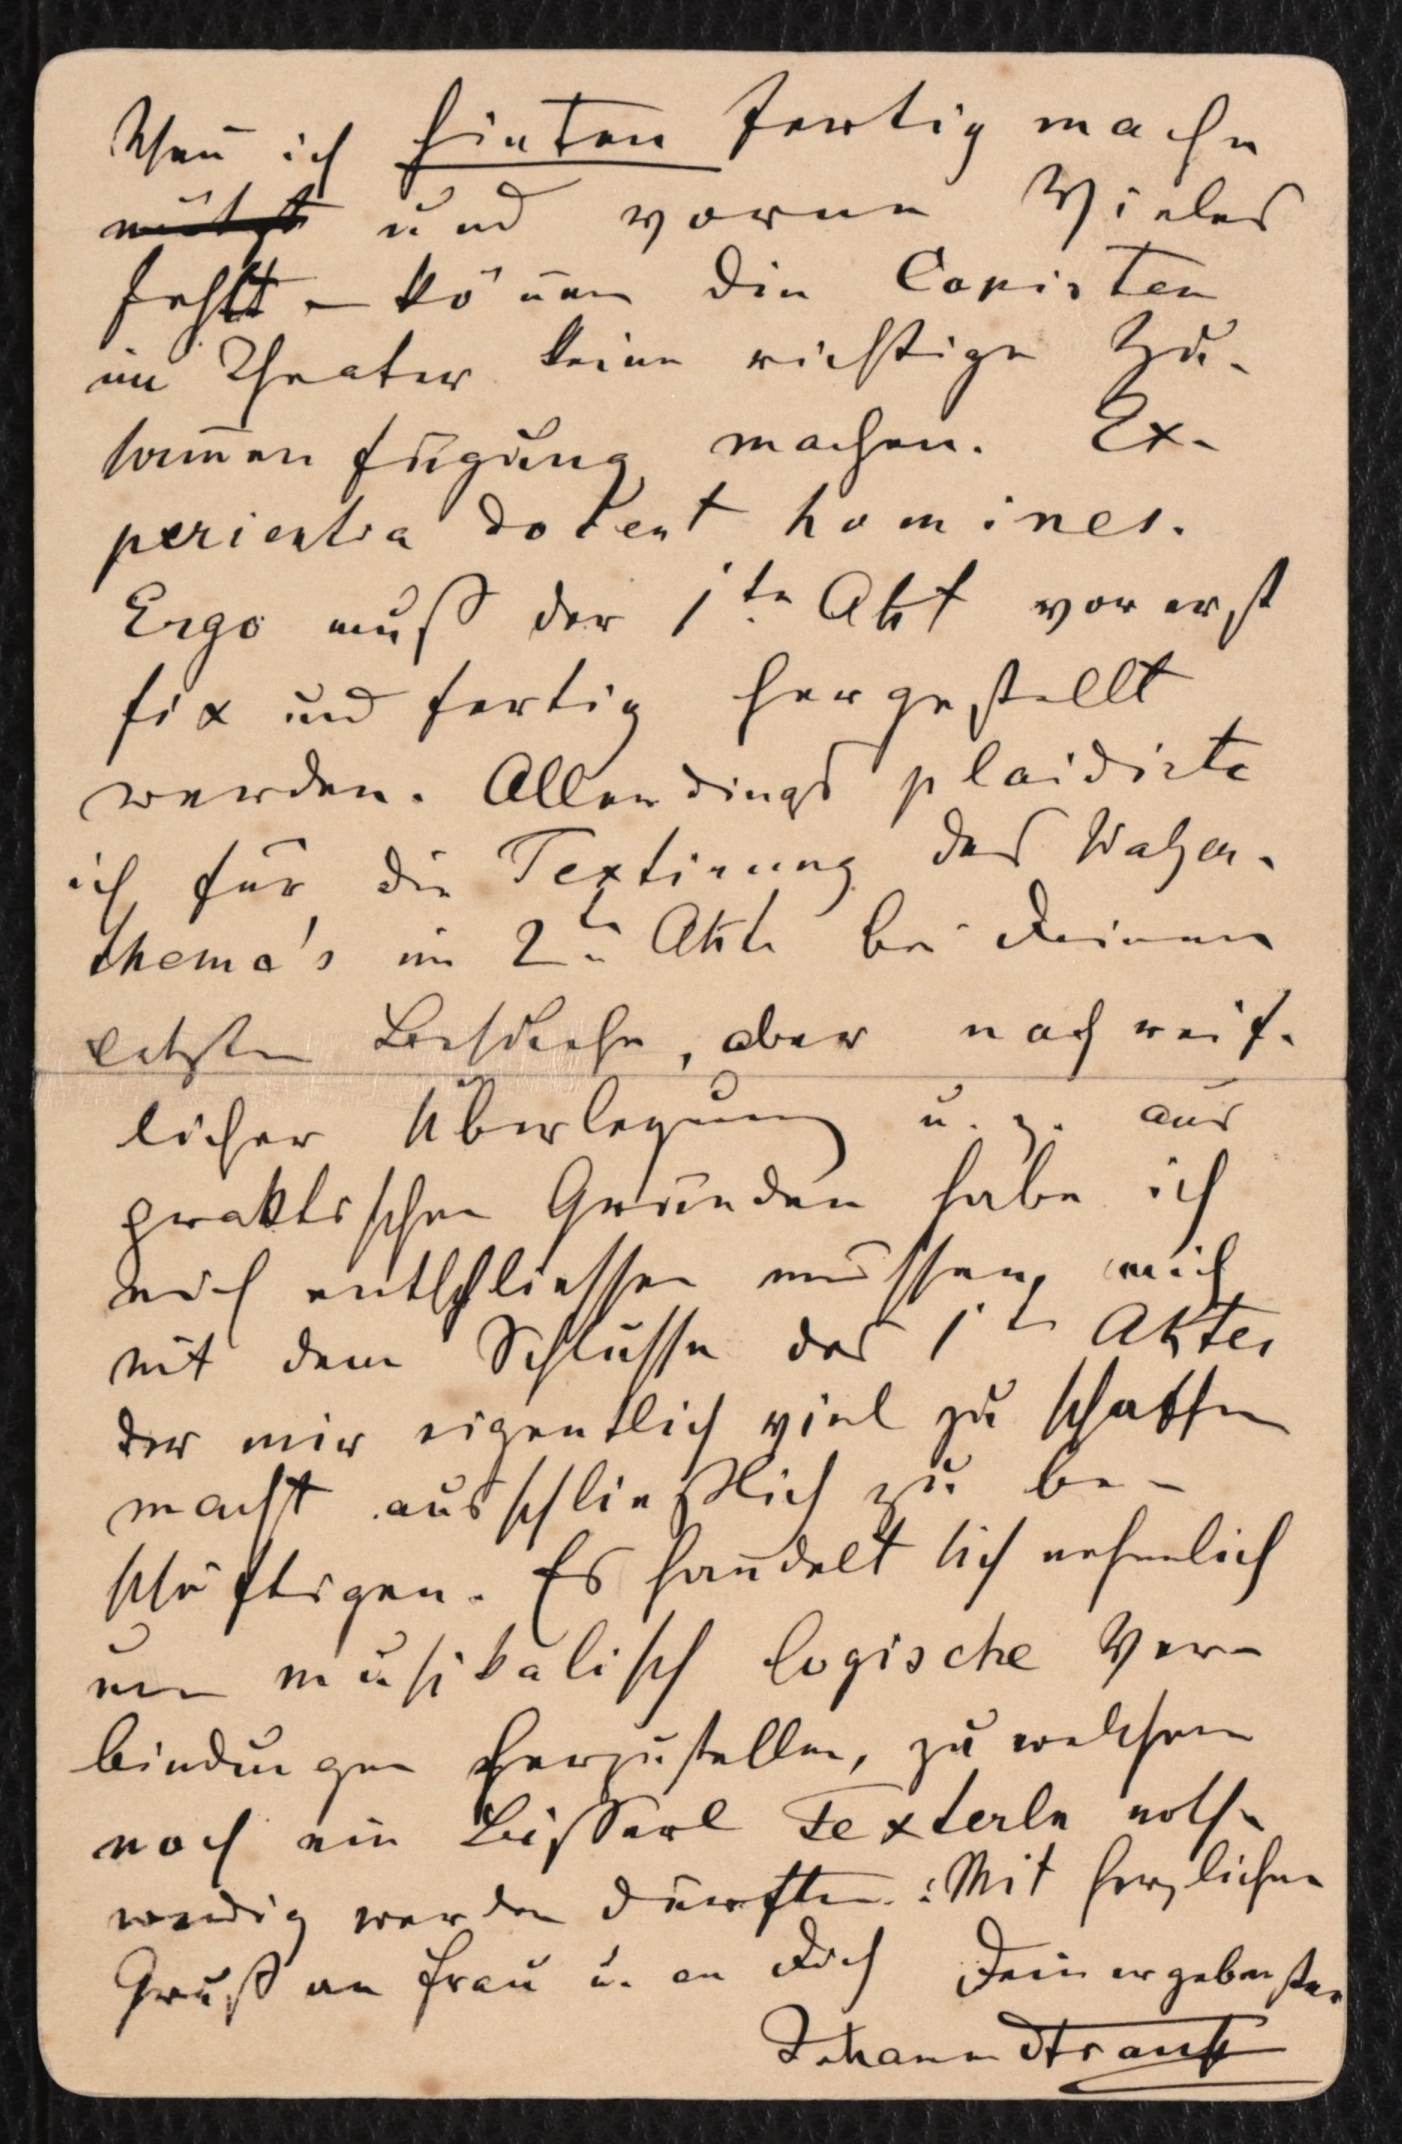 Wen̅ ich hinten fertig mache
nützt und vorne Vieles
fehlt – kön̅en die Copisten
im Theater keine richtige Zu-
sam̅enfügung machen. Ex-
perientia docent homines.
Ergo muß der 1te Akt vorerst
fix und fertig hergestellt
werden. Allerdings plaidirte
ich für die Textirung des Walzer-
thema's im 2ten Akte bei Deinem
letzten Besuche, aber nach reif-
licher Überlegung u. z. aus
praktischen Gründen habe ich
mich entschliessen müssen, mich
mit dem Schlusse des 1ten Aktes
der mir eigentlich viel zu schaffen
macht ausschließlich zu be-
schäftigen. Es han̅delt sich nehmlich
um musikalisch logische Ver-
bindungen herzustellen, zu welchem
noch ein Bisserl Texterln noth-
wendig werden dürften. Mit herzlichem
Gruß an Frau u. an Dich Dein ergebenster
Johann Strauß